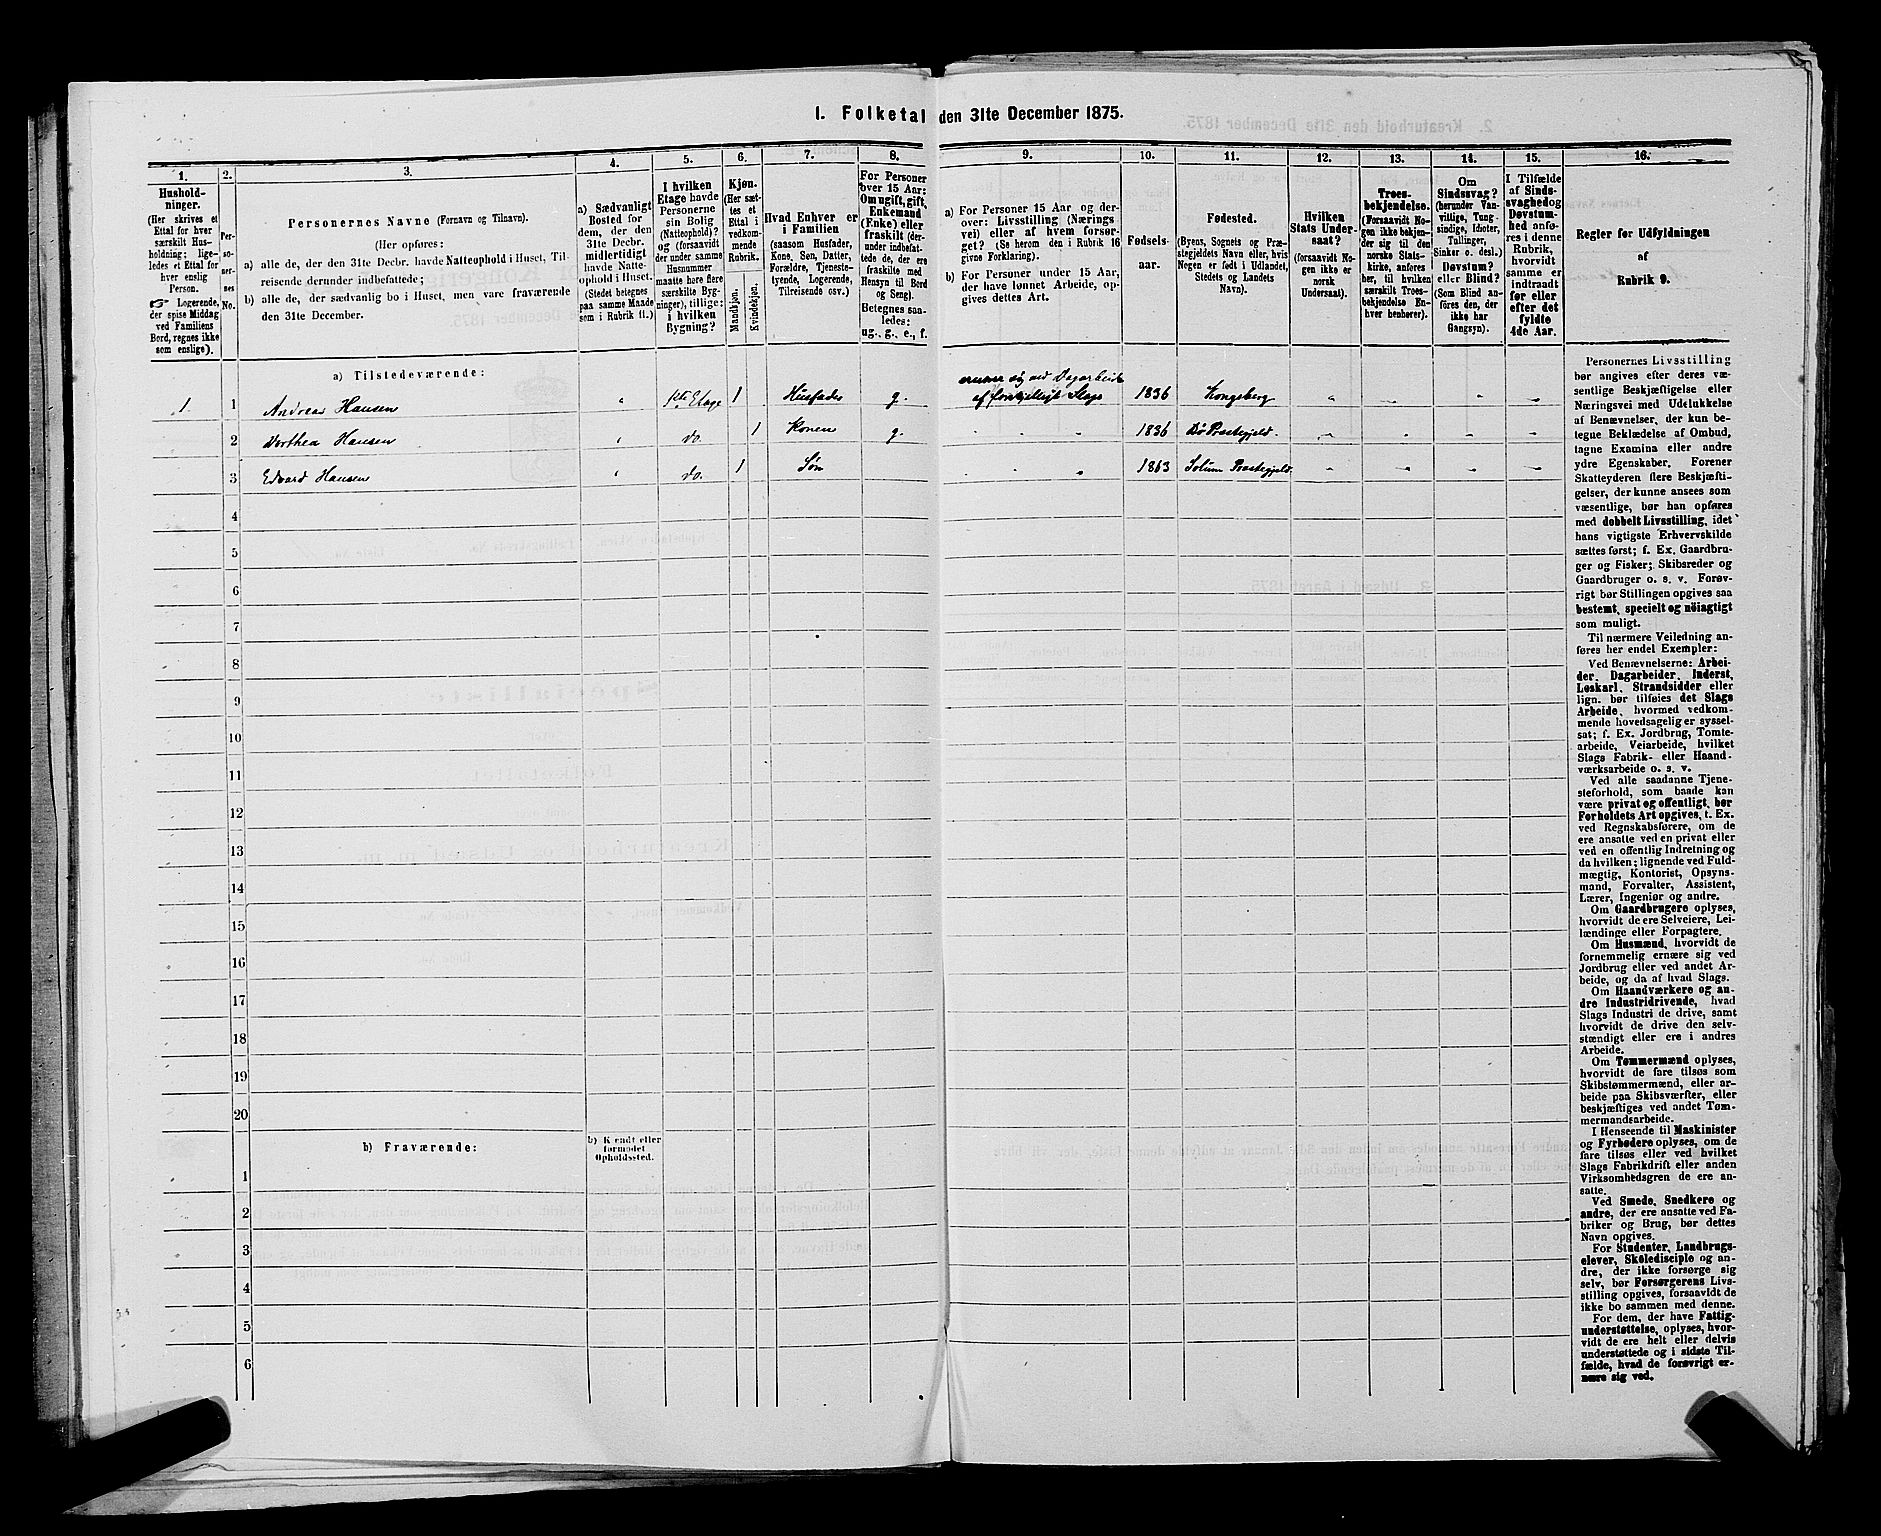 1. Folketal den 31te December 1875.
1.
Hushold-
ninger.
(Her skrives et
Ettal for hver
særskilt Hus-
holdning; lige-
ledes et Ettal for
hver enslig
Person.
☞ Logerende,
der spise Middag
ved Familiens
Bord, regnes ikke
som enslige).
2.
Per-
so-
ner-
nes
No.
3.
Personernes Navne (Fornavn og Tilnavn).
(Her opføres:
a) alle de, der den 31te Decbr. havde Natteophold i Huset, Til-
reisende derunder indbefattede;
b) alle de, der sædvanlig bo i Huset, men vare fraværende
den 31te December.
4.
a) Sædvanligt
Bosted for
dem, der den
31te Decbr.
midlertidigt
havde Natte-
ophold i Huset.
(Stedet betegnes
paa samme Maade
som i Rubrik 11.)
5.
I hvilken
Etage havde
Personerne
sin Bolig
(Natteophold)?
og (forsaavidt
der under samme
Husnummer
maatte høre flere
særskilte Byg-
ninger), tillige:
i hvilken
Bygning?
6.
Kjøn.
(Her sæt-
tes et
Ettal i
vedkom-
mende
Rubrik.
Mandkjøn.
Kvindekjøn.
7.
Hvad Enhver er
i Familien
(saasom Husfader,
Kone, Søn, Datter,
Forældre, Tjeneste-
tyende, Logerende,
Tilreisende osv.)
8.
For Personer
over 15 Aar:
Om ugift, gift,
Enkemand
(Enke) eller
fraskilt (der-
under indbefat-
tede de, der ere
fraskilte med
Hensyn til Bord
og Seng).
Betegnes saa-
ledes:
ug., g., e., f.
9.
a) For Personer 15 Aar og der-
over: Livsstilling (Nærings-
vei) eller af hvem forsør-
get? (Se herom den i Rubrik 16
givne Forklaring).
b) For Personer under 15 Aar,
der have lønnet Arbeide, op-
gives dettes Art.
10.
Fødsels-
aar.
11.
Fødested.
(Byens, Sognets og Præ-
stegjeldets Navn eller, hvis
Nogen er født i Udlandet,
Stedets og Landets
Navn).
12.
Hvilken
Stats Under-
saat?
(forsaavidt No-
gen ikke er
norsk
Undersaat).
13.
Troes-
bekjendelse.
(Forsaavidt No-
gen ikke bekjen-
der sig til den
norske Stats-
kirke, anføres
her, til hvilken
særskilt Troes-
bekjendelse En-
hver henhører).
14.
Om
Sindssvag?
(herunder Van-
vittige, Tung-
sindige, Idioter,
Tullinger,
Sinker o. desl.)
Døvstum?
eller Blind?
(Som Blind an-
føres den, der
ikke har
Gangsyn).
15.
I Tilfælde
af Sinds-
svaghed og
Døvstum-
hed anfø-
res i denne
Rubrik,
hvorvidt
samme er
indtraadt
før eller
efter det
fyldte
4de Aar.
16.
Regler for Udfyldningen
af
Rubrik 9.
a) Tilstedeværende:
1 1 Andreas Hansen " 1ste Etage 1 Husfader g. ernærer sig ved Dagarbeide
af forskjelligt Slags 1836 Kongsberg " - " -
2 Dorthea Hansen " do. 1 Konen g. " " 1836 Bø Præstegjeld. - - - -
3 Edvard Hansen " do. 1 Søn " " 1863 Solum Præstegjeld. - - - -
4
5
6
7
8
9
10
11
12
13
14
15
16
17
18
19
20
b) Fraværende:
b) Kjendt eller
formodet
Opholdssted.
1
2
3
4
5
6
Personernes Livsstilling
bør angives efter deres væ-
sentlige Beskjæftigelse eller
Næringsvei med Udelukkelse
af Benævnelser, der kun be-
tegne Beklædelse af Ombud,
tagne Examina eller andre
ydre Egenskaber. Forener
Skatteyderen flere Beskjæfti-
gelser, der kunne ansees som
væsentlige, bør han opføres
med dobbelt Livsstilling, idet
hans vigtigste Erhvervskilde
sættes først; f. Ex. Gaardbru-
ger og Fisker; Skibsreder og
Gaardbruger o. s. v. Forøv-
rigt bør Stillingen opgives saa
bestemt, specielt og nöiagtigt
som muligt.
Til nærmere Veiledning an-
føres her endel Exempler:
Ved Benævnelserne: Arbei-
der, Dagarbeider, Inderst,
Løskarl, Strandsidder eller
lign. bør tilføies det Slags
Arbeide, hvormed vedkom-
mende hovedsagelig er syssel-
sat; f. Ex. Jordbrug, Tomte-
arbeide, Veiarbeide, hvilket
Slags Fabrik- eller Haand-
værksarbeide o. s. v.
Ved alle saadanne Tjene-
steforhold, som baade kan
være privat og offentligt, bør
Forholdets Art opgives, t. Ex.
ved Regnskabsførere, om de
ere ansatte ved en privat eller
ved en offentlig Indretning og
da hvilken; lignende ved Fuld-
mægtig, Kontorist, Opsyns-
mand, Forvalter, Assistent,
Lærer, Ingeniør og andre.
Om Gaardbrugere oplyses,
hvorvidt de ere Selveiere, Lei-
lændinge eller Forpagtere.
Om Husmænd, hvorvidt de
fornemmelig ernære sig ved
Jordbrug eller ved andet Ar-
beide, og da af hvad Slags.
Om Haandværkere og an-
dre Industridrivende, hvad
Slags Industri de drive, samt
hvorvidt de drive den selv-
stændigt eller ere i andres
Arbeide.
Om Tømmermænd oplyses,
hvorvidt de fare tilsøs som
Skibstømmermænd, eller ar-
beide paa Skibsværfter, eller
beskjæftiges ved andet Tøm-
mermandsarbeide.
I Henseende til Maskinister
og Fyrbødere oplyses, om de
fare tilsøs eller ved hvilket
Slags Fabrikdrift eller anden
Virksomhedsgren de ere an-
satte.
Ved Smede, Snedkere og
andre, der ere ansatte ved Fa-
briker og Brug, bør dettes
Navn opgives.
For Studenter, Landbrugs-
elever, Skoledisciple og an-
dre, der ikke forsørge sig
selv, bør Forsørgerens Livs-
stilling opgives, forsaavidt de
ikke bo sammen med denne.
For dem, der have Fattig-
understøttelse, oplyses, hvor-
vidt de ere helt eller delvis
understøttede og i sidste Til-
fælde, hvad de forøvrigt er-
nære sig ved.